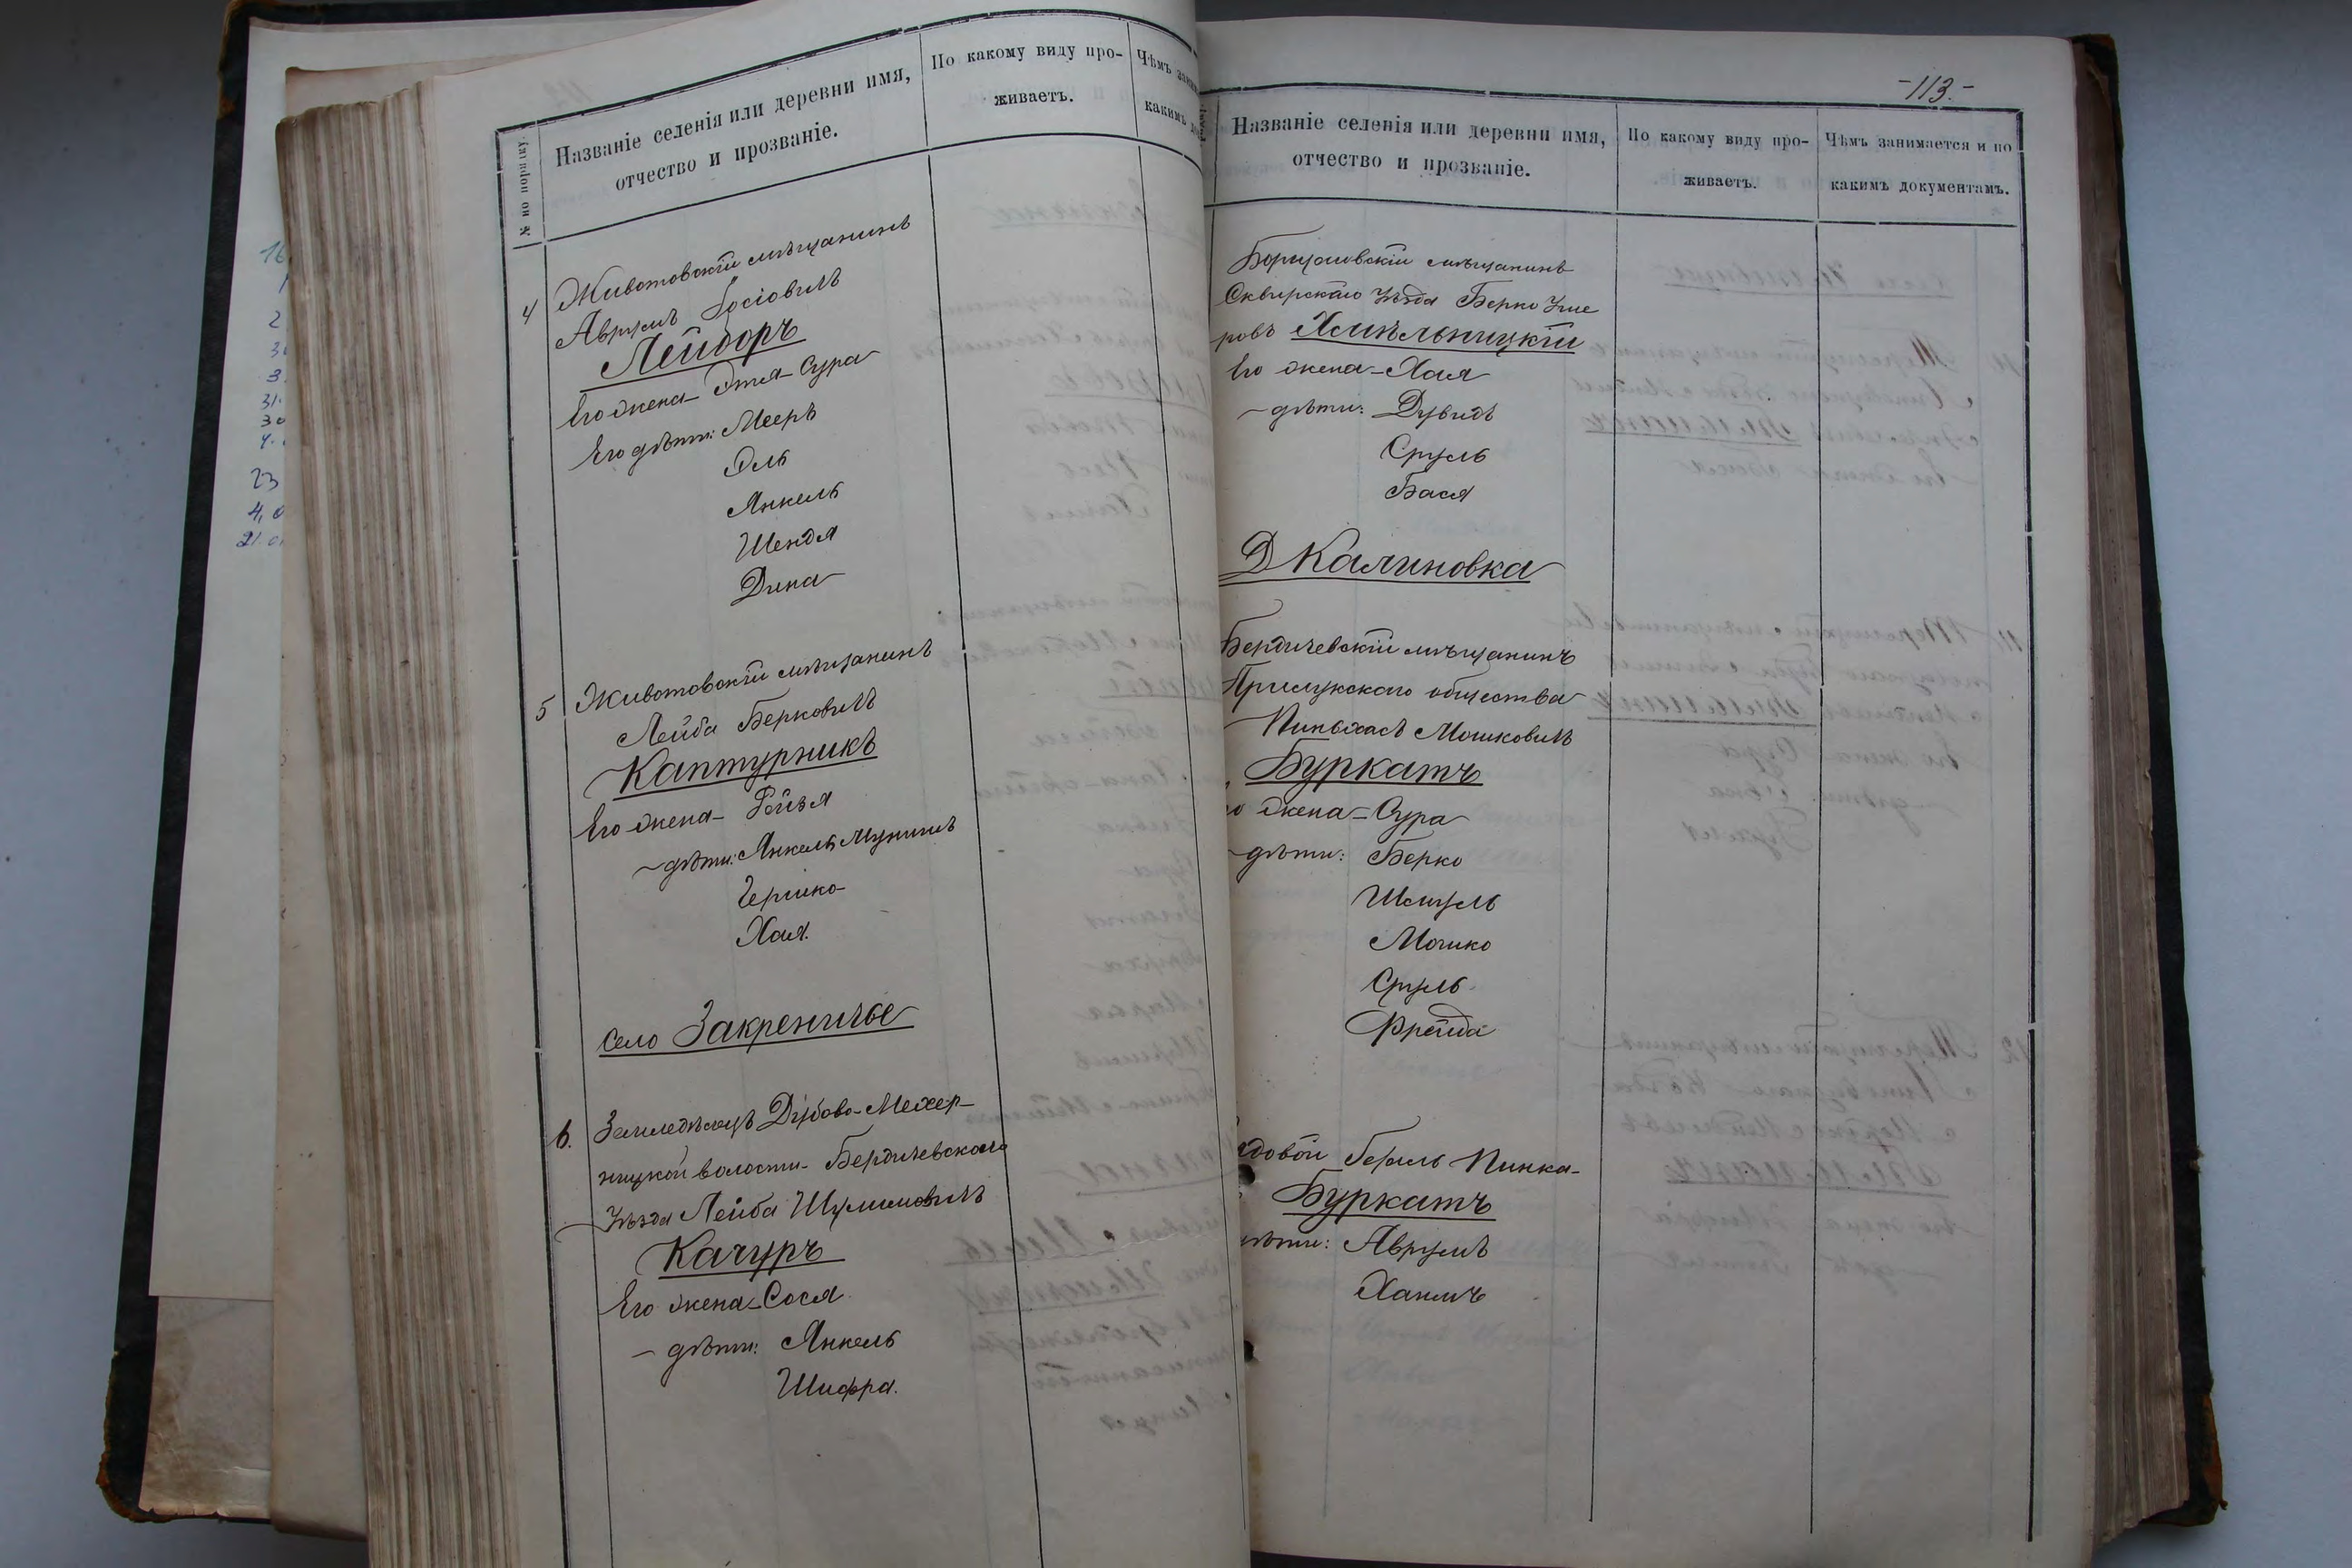 № по порядку.
Названіе селенія или деревни имя,
отчество и прозваніе.
По какому виду про-
живаетъ.
Чѣмъ
какимъ
4
Животовскій мѣщанинъ
Аврумъ Іосіовичъ
Лейдоръ
Его жена - Этля - Сура
Его дѣти: Мееръ
Эль
Янкель
Шендля
Дина
5
Животовскій мѣщанинъ
Лейба Берковичъ
Каптурникъ
Его жена - Рейзя
- дѣти: Янкель Мунишъ
Гершко
Хая.
Село Закреничье
6.
Земледѣлецъ Дубово-Мехер-
нецкой волости - Бердичевскаго
Уѣзда Лейба Шулимовичъ
Качуръ
Его жена - Сося
- дѣти: Янкель
Шифра.
-113.-
Названіе селенія или деревни имя,
отчество и прозваніе.
По какому виду про-
живаетъ.
Чѣмъ занимается и по
какимъ документамъ.
Борщовскій мѣщанинъ
Сквирскаго Уѣзда Берко Уше
ровъ Хмѣльницкій
Его жена - Хая
- дѣти: Дувидъ
Сруль
Бася
Д Калиновка
Бердичевскій мѣщанинъ
Прилукскаго общества
Пинхасъ Мошковичъ
Буркатъ
жена - Сура
- дѣти: Берко
Шмуль
Мошко
Сруль
Фрейда
Пинка-
Буркатъ
дѣти: Аврумъ
Хаимъ